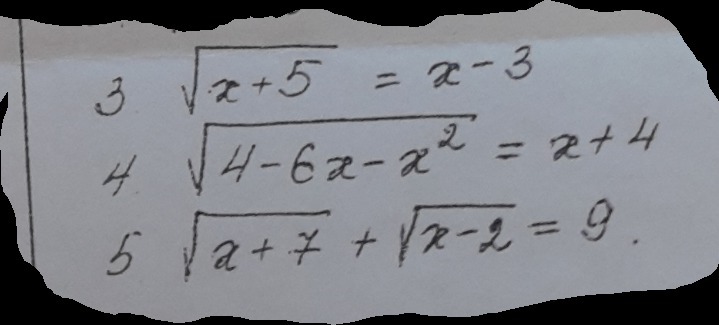 3 √(x+5) = x-3
4 √(4-6x-x²) = x+4
5 √(x+7) + √(x-2) = 9.